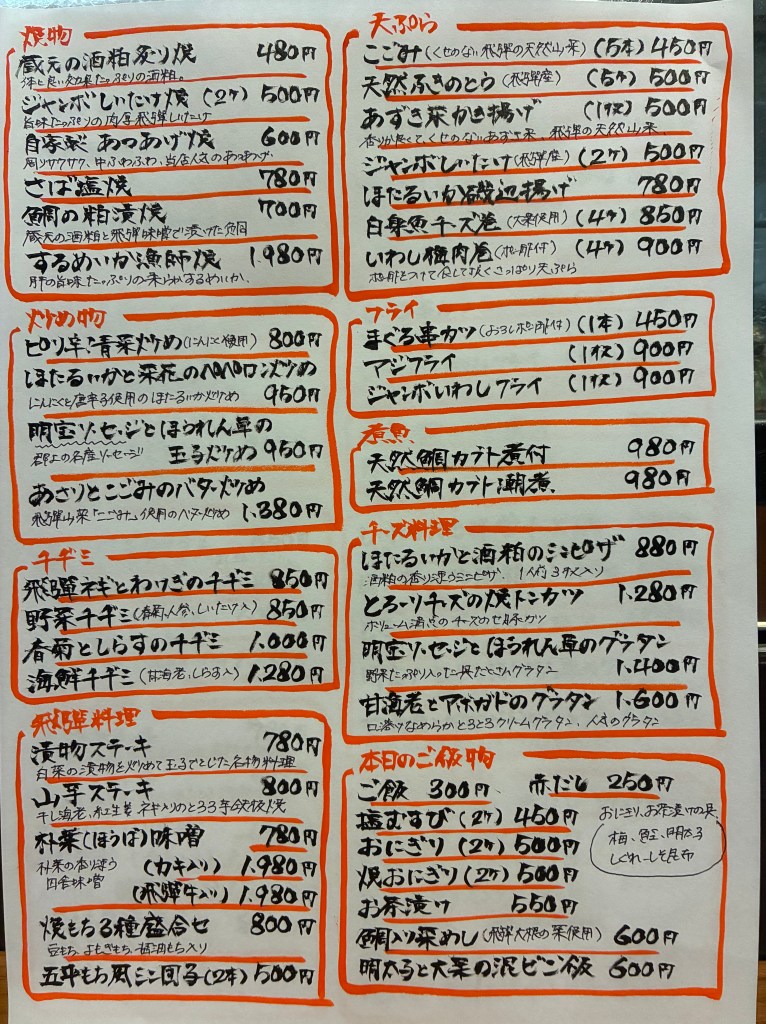 焼物
蔵元の酒粕炙り焼 480円
体に良い効果たっぷりの酒粕。
ジャンボしいたけ焼(2ケ)500円
旨味たっぷりの肉厚飛騨しいたけ
自家製 あつあげ焼 600円
周りサクサク、中ふわふわ、当店人気のあつあげ
さば塩焼 780円
鯛の粕漬焼 700円
蔵元の酒粕と飛騨味噌で漬けた
するめいか漁師焼 1.980円
肝の旨味たっぷりの柔らかするめいか、
炒め物
ピリ辛青菜炒め(にんにく使用) 800円
ほたるいかと菜花のペペロン炒め
にんにくと唐辛子使用のほたるいか炒め 950円
明宝ソーセージとほうれん草の
郡上の名産ソーセージ 玉子炒め 950円
あさりとこごみのバター炒め
飛騨山菜「こごみ」使用のバター炒め 1.380円
チヂミ
飛騨ネギとわけぎのチヂミ 850円
野菜チヂミ(春菊、人参、しいたけ入) 850円
春菊としらすのチヂミ 1.000円
海鮮チヂミ(甘海老、しらす入) 1.280円
飛騨料理
漬物ステーキ 780円
白菜の漬物を炒めて玉子でとじた名物料理
山芋ステーキ 800円
干し海老、紅生姜、ネギ入りのとろろ鉄板焼
朴葉(ほうば)味噌 780円
朴葉の香り漂う
田舎味噌
(カキ入り) 1.980円
(飛騨牛入り) 1.980円
焼もち3種盛合せ 800円
豆もち、よもぎもち、入り
五平もち風ミニ団子(2本)500円
天ぷら
こごみ(くせのない飛騨の天然山菜) (5本)450円
天然ふきのとう(飛騨産) (5ケ)500円
あずき菜かき揚げ (1ケ)500円
香りが良くて、くせのないあずき菜 飛騨の天然山菜
ジャンボしいたけ(飛騨産) (2ケ)500円
ほたるいか磯辺揚げ 780円
白身魚チーズ巻(大葉使用) (4ケ)850円
いわし梅肉巻(ポン酢付) (4ケ)900円
ポン酢をつけて食して頂くさっぱり天ぷら
フライ
まぐろ串カツ(おろしポン酢付) (1本)450円
アジフライ (1枚)900円
ジャンボいわしフライ (1枚)900円
煮魚
天然鯛カブト煮付 980円
天然鯛カブト潮煮 980円
チーズ料理
ほたるいかと酒粕のミニピザ 880円
酒粕の香り漂うミニピザ、1人前3枚入り
とろーりチーズの焼トンカツ 1.280円
ボリューム満点のチーズのせ豚カツ
明宝ソーセージとほうれん草のグラタン
野菜たっぷり入った具だくさんグラタン 1.400円
甘海老とアボガドのグラタン 1.600円
口溶けなめらかとろとろクリームグラタン、人気のグラタン
本日のご飯物
ご飯 300円、 赤だし 250円
塩むすび(2ケ)450円
おにぎり(2ケ)500円
焼おにぎり(2ケ)500円
お茶漬け 550円
おにぎり、お茶漬けの具、
梅、鮭、明太子
しぐれ、しそ昆布
鯛入り菜めし(飛騨大根の葉使用) 600円
明太子と大葉の混ぜご飯 600円